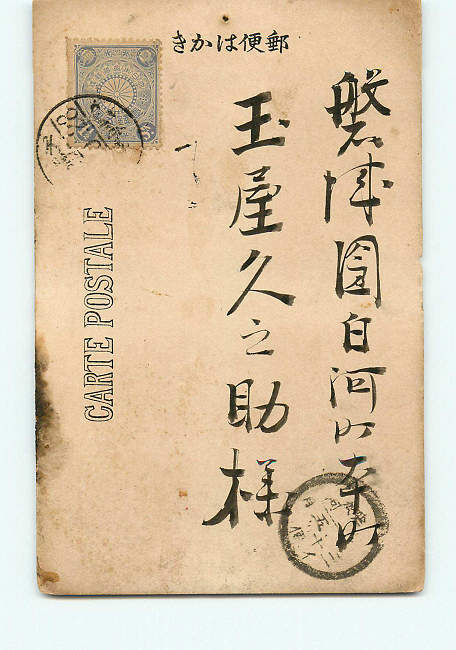 郵便はかき
磐城國白河町本町
玉屋久之助様
CARTE POSTALE